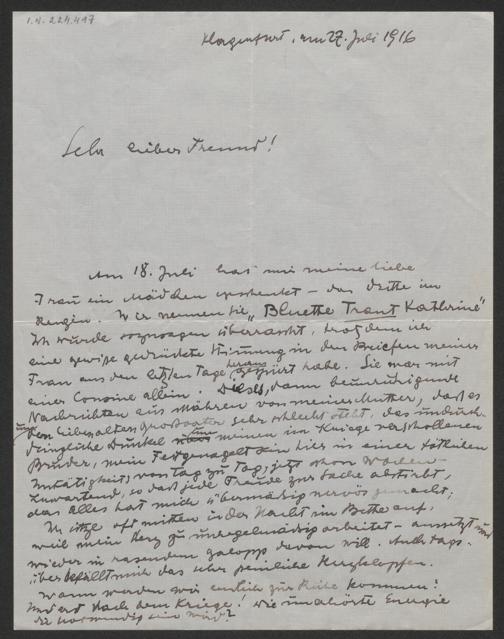 1.N. 224.497
Klagenfurt, am 27. Juli 1916
Sehr lieber Freund!
Am 18. Juli hat mir meine liebe
Frau ein Mädchen geschenkt – das dritte im
Reigen. Wir nennen sie „Bluette Trant Kathrine"
Ich wurde sozusagen überrascht, trotzdem ich
eine gewisse gedrückte Stimmung in den Briefen meiner
Frau aus den letzten Tagen heraus gespürt habe. Sie war mit
einer Cousine allein. Dieses, dann beunruhigende
Nachrichten aus Mähren von meiner Mutter, daß es
um den lieben alten Großvater sehr schlecht steht, das undurch-
dringliche Dunkel um meinen im Kriege verschollenen
Bruder, mein Festgenagelt sein hier in einer tötlichen
Untätigkeit, von Tag zu Tag, jetzt schon Wochen
zuwartend, so daß jede Freude zur Sache abstirbt,
das Alles hat mich übermäßig nervös gemacht;
Ich sitze oft mitten in der Nacht im Bette auf,
weil mein Herz zu unregelmäßig arbeitet – aussetzt und
wieder in rasendem galopp davon will. Auch tags-
über befällt mich das sehr peinliche Herzklopfen.
Wann werden wir endlich zur Ruhe kommen?
Und erst Nach dem Kriege! Wie unerhörte Energie
da notwendig sein wird?